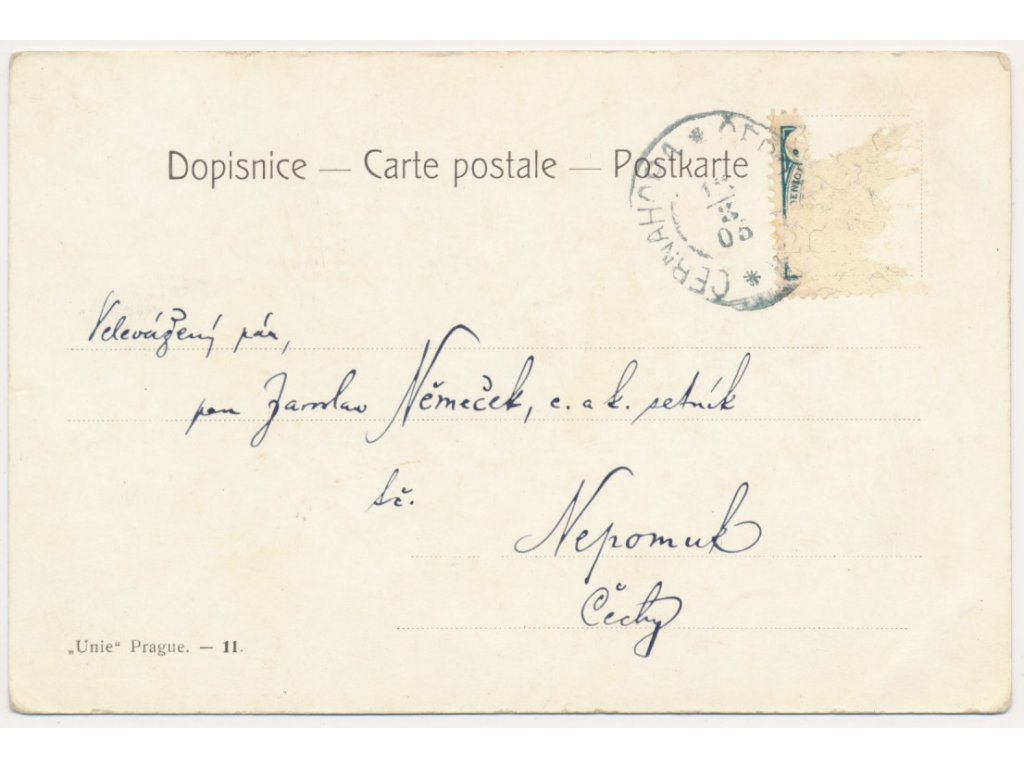 Dopisnice — Carte postale — Postkarte
ČERNAHORA * ČER
12
8
05
Velevážený pán,
pan Jaroslav Němeček, c. a k. setník
Nepomuk
Čechy
„Unie“ Prague. — 11.